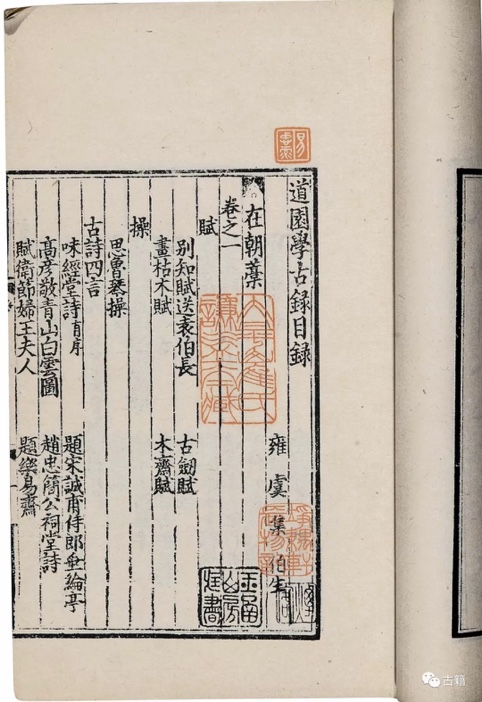 道園學古録目録
雍虞集伯生
在朝藁
卷之一
賦
別知賦送袁伯長 古劒賦
畫枯木賦 木齋賦
操
思魯琴操
古詩四言
味經堂詩有序 題宋誠甫侍郎垂綸亭
髙彦敬青山白雲圖 趙忠簡公祠堂詩
賦衛節婦王夫人 題樂易齋
古籍